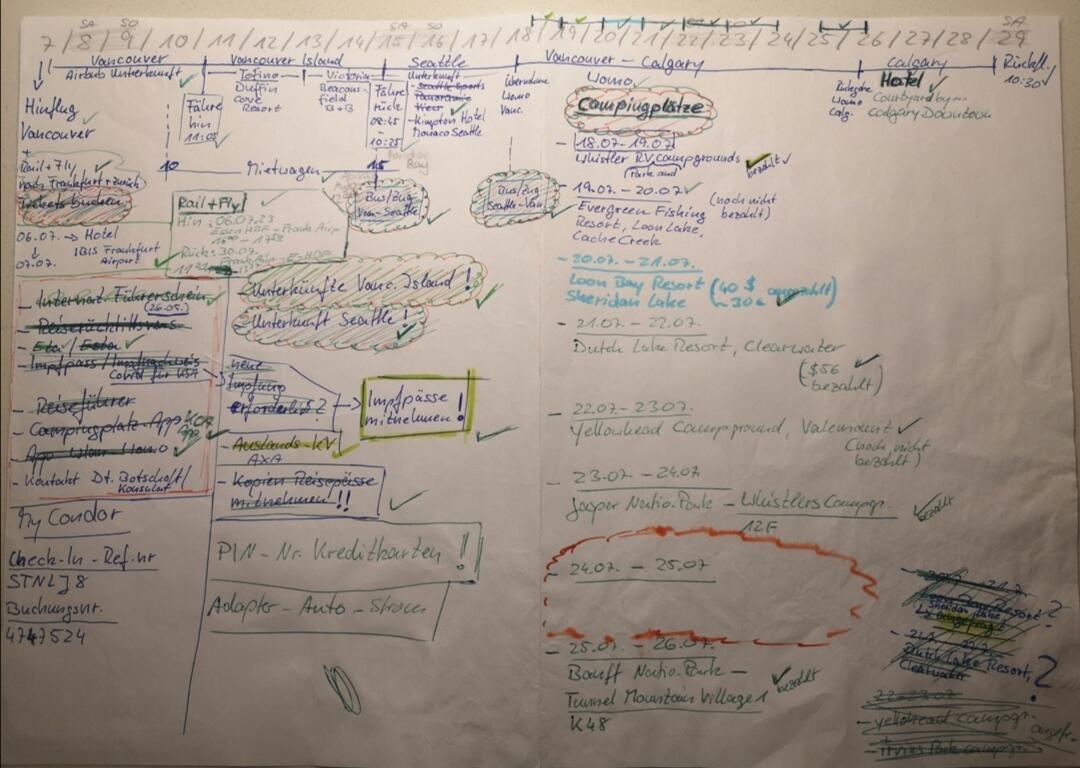 SA SO SA SO SA
7 / 8 / 9 / 10 / 11 / 12 / 13 / 14 / 15 / 16 / 17 / 18 / 19 / 20 / 21 / 22 / 23 / 24 / 25 / 26 / 27 / 28 / 29
Vancouver
Airbnb Unterkunft
Hinflug
Vancouver
+
Rail + Fly
nach Frankfurt + zurück
Tickets buchen
06.07. → Hotel
↓ IBIS Frankfurt
07.07. Airport
Vancouver Island
Fähre
hin
11:05
Tofino
Duffin
Cove
Resort
Victoria
Beacons-
field
B+B
Fähre
rück
08:45
-
10:25
Seattle
Unterkunft
- Seattle Sports
Panoramic
View
- Kimpton Hotel
Monaco Seattle
Übernahme
Womo
Vanc.
10 Mietwagen 15
Rail + Fly
Hin: 06.07.23
Essen HBF - Frank. Airp.
Rück: 30.07.
Frank. Airp. - E-HBF
Bus/Zug
Van-Seattle
Bus/Zug
Seattle-Van
- Unterkünfte Vanc. Island!
- Unterkunft Seattle!
- Internat. Führerschein
(26.05.)
- Reiserücktrittsvers.
- Eta / Esta
- Impfpass / Impfnachweis
Covid für USA
- Reiseführer
- Campingplatz-App
- Kontakt Dt. Botschaft/
Konsulat
neue
Impfung
erforderlich?
→ Impfpässe
mitnehmen!
- Auslands-KV
AXA
- Kopien Reisepässe
mitnehmen!!
My Condor
Check-In-Ref.nr
STNLJ8
Buchungsnr.
4747524
PIN-Nr. Kreditkarten!
Adapter-Auto-Strom
Vancouver - Calgary
Womo
Campingplätze
- 18.07-19.07
Whistler RV campgrounds
(Park and
bezahlt
- 19.07 - 20.07
(noch nicht
bezahlt)
Evergreen Fishing
Resort, Loon Lake,
Cache Creek
- 20.07. - 21.07.
Loon Bay Resort (40 $ angezahlt)
Sheridan Lake ~ 30€
- 21.07. - 22.07.
Dutch Lake Resort, Clearwater
($56
bezahlt)
- 22.07 - 23.07.
Yellowhead Campground, Valemount
(noch nicht
bezahlt)
- 23.07 - 24.07
Jasper Natio. Park - Whistlers Campgr.
12F
bezahlt
- 24.07. - 25.07
- 25.07. - 26.07.
Banff Natio. Park -
Tunnel Mountain Village 1
K48
bezahlt
Rückgabe
Womo
Calg.
Calgary
Hotel
Courtyard by
Calgary Downtown
Rückfl.
10:30
Sheridan Lake
Dutch Lake Resort,
Clearwater
?
22-23.07
- Yellohead Campgr.
- Irvins Park campgr.
angefr.